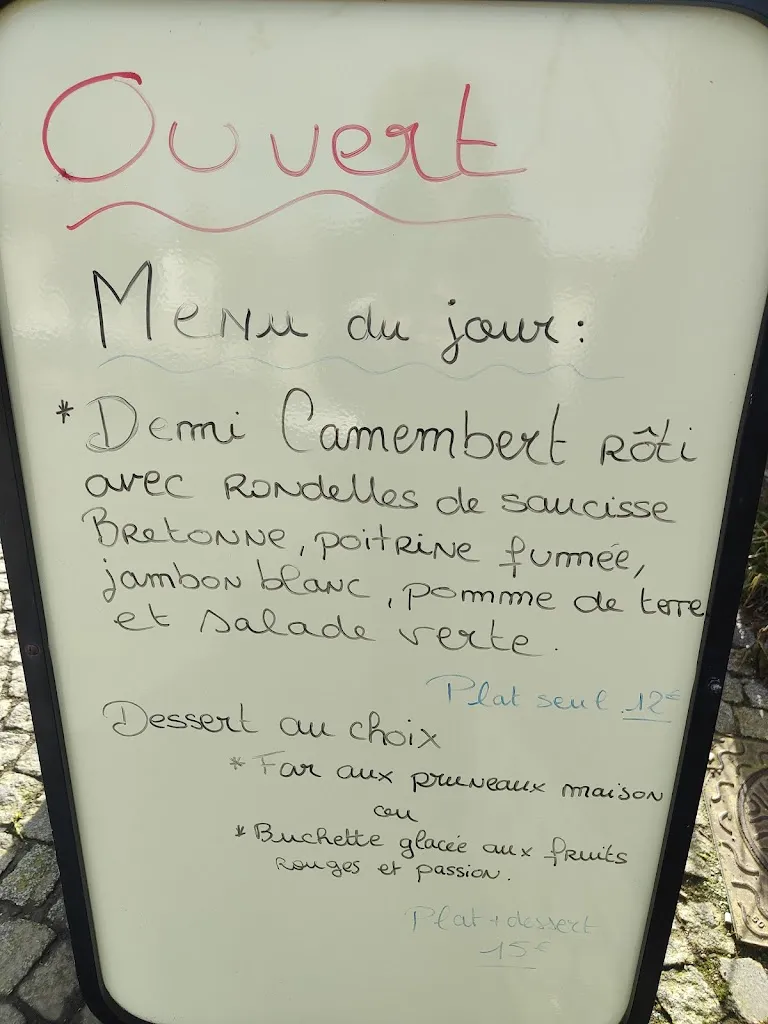 Ouvert
Menu du jour :
* Demi Camembert rôti
avec rondelles de saucisse
Bretonne, poitrine fumée,
jambon blanc, pomme de terre
et salade verte.
Plat seul 12€
Dessert au choix
* Far aux pruneaux maison
ou
* Buchette glacée aux fruits
rouges et passion.
Plat + dessert
15€